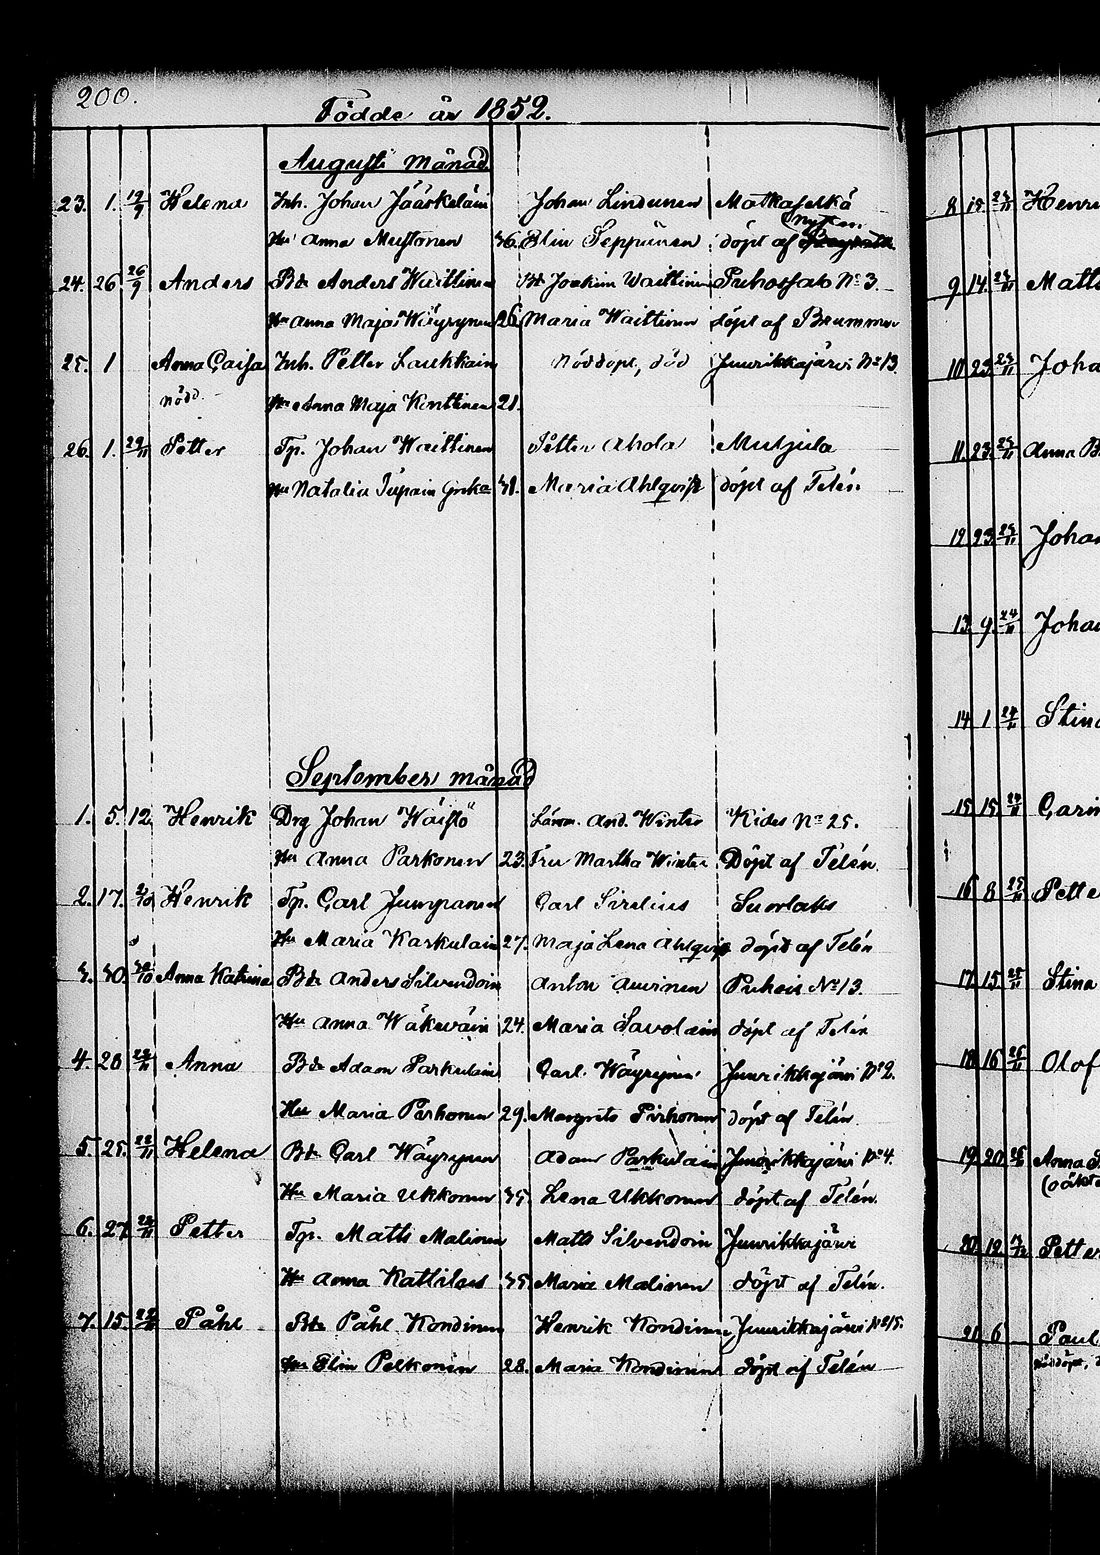 200.
Födde år 1852.
Augusti månad
23. 1. 12/9 Helena Inh. Johan Jääskeläin Johan Lindunen Matkaselkä
Hu Anna Mustonen 36. Elin Seppänen döpt af
24. 26 26/9 Anders Bd. Anders Waittinen Bd. Joakim Waittinen Puhossalo No 3.
Hu Anna Maja Wäyrynen 26 Maria Waittinen döpt af Brummer
25. 1 Anna Caisa Inh. Petter Laukkain Nöddöpt, död Juurikkajärvi No 13.
nödd. Hu Anna Maja Konttinen 21.
26. 1. 29/11 Petter Tp. Johan Waittinen Petter Ahola Mutjula
Hu Natalia 31. Maria Ahlqvist döpt af Telén
September månad
1. 5. 12 Henrik Drg Johan Wäistö Länm. And. Winter Kides No 25.
Hu Anna Parkonen 23. Fru Martha Winter Döpt af Telén.
2. 17. Henrik Tp. Carl Jumpanen Carl Sirelius Suorlaks
Hu Maria Karkulain 27. Maja Lena Ahlqvist döpt af Telén
3. 30. Anna Katrina Bd. Anders Silvendoin Anton Auvinen Puhois No 13.
Hu Anna Wäkeväin 24. Maria Savolain döpt af Telén
4. 28 Anna Bd. Adam Parkulain Carl Wäyrynen Juurikkajärvi No 2.
Hu Maria Parhonen 29. Margreta Pirhonen döpt af Telén.
5. 25. Helena Bd. Carl Wäyrynen Adam Parkulain Juurikkajärvi No 4.
Hu Maria Ukkonen 35. Lena Ukkonen döpt af Telén.
6. 27 Petter Tp. Matts Malinen Matts Silvendoin Juurikkajärvi
Hu Anna Kattilus 35. Maria Malinen döpt af Telén.
7. 15 Påhl Bd. Påhl Kondinen Henrik Kondinen Juurikkajärvi No 15.
Hu Elin Pelkonen 28. Maria Kondinen döpt af Telén
8 Henri
9 14 Matts
10 23 Joha
11. 23. Anna B
12 23. Johan
13. 9. Johan
14 1 Stina
15. 15. Carin
16 8 Pette
17. 15 Stina
18 16 Olof
19. 20 Anna S
20 12 Petter
21 6 Paul